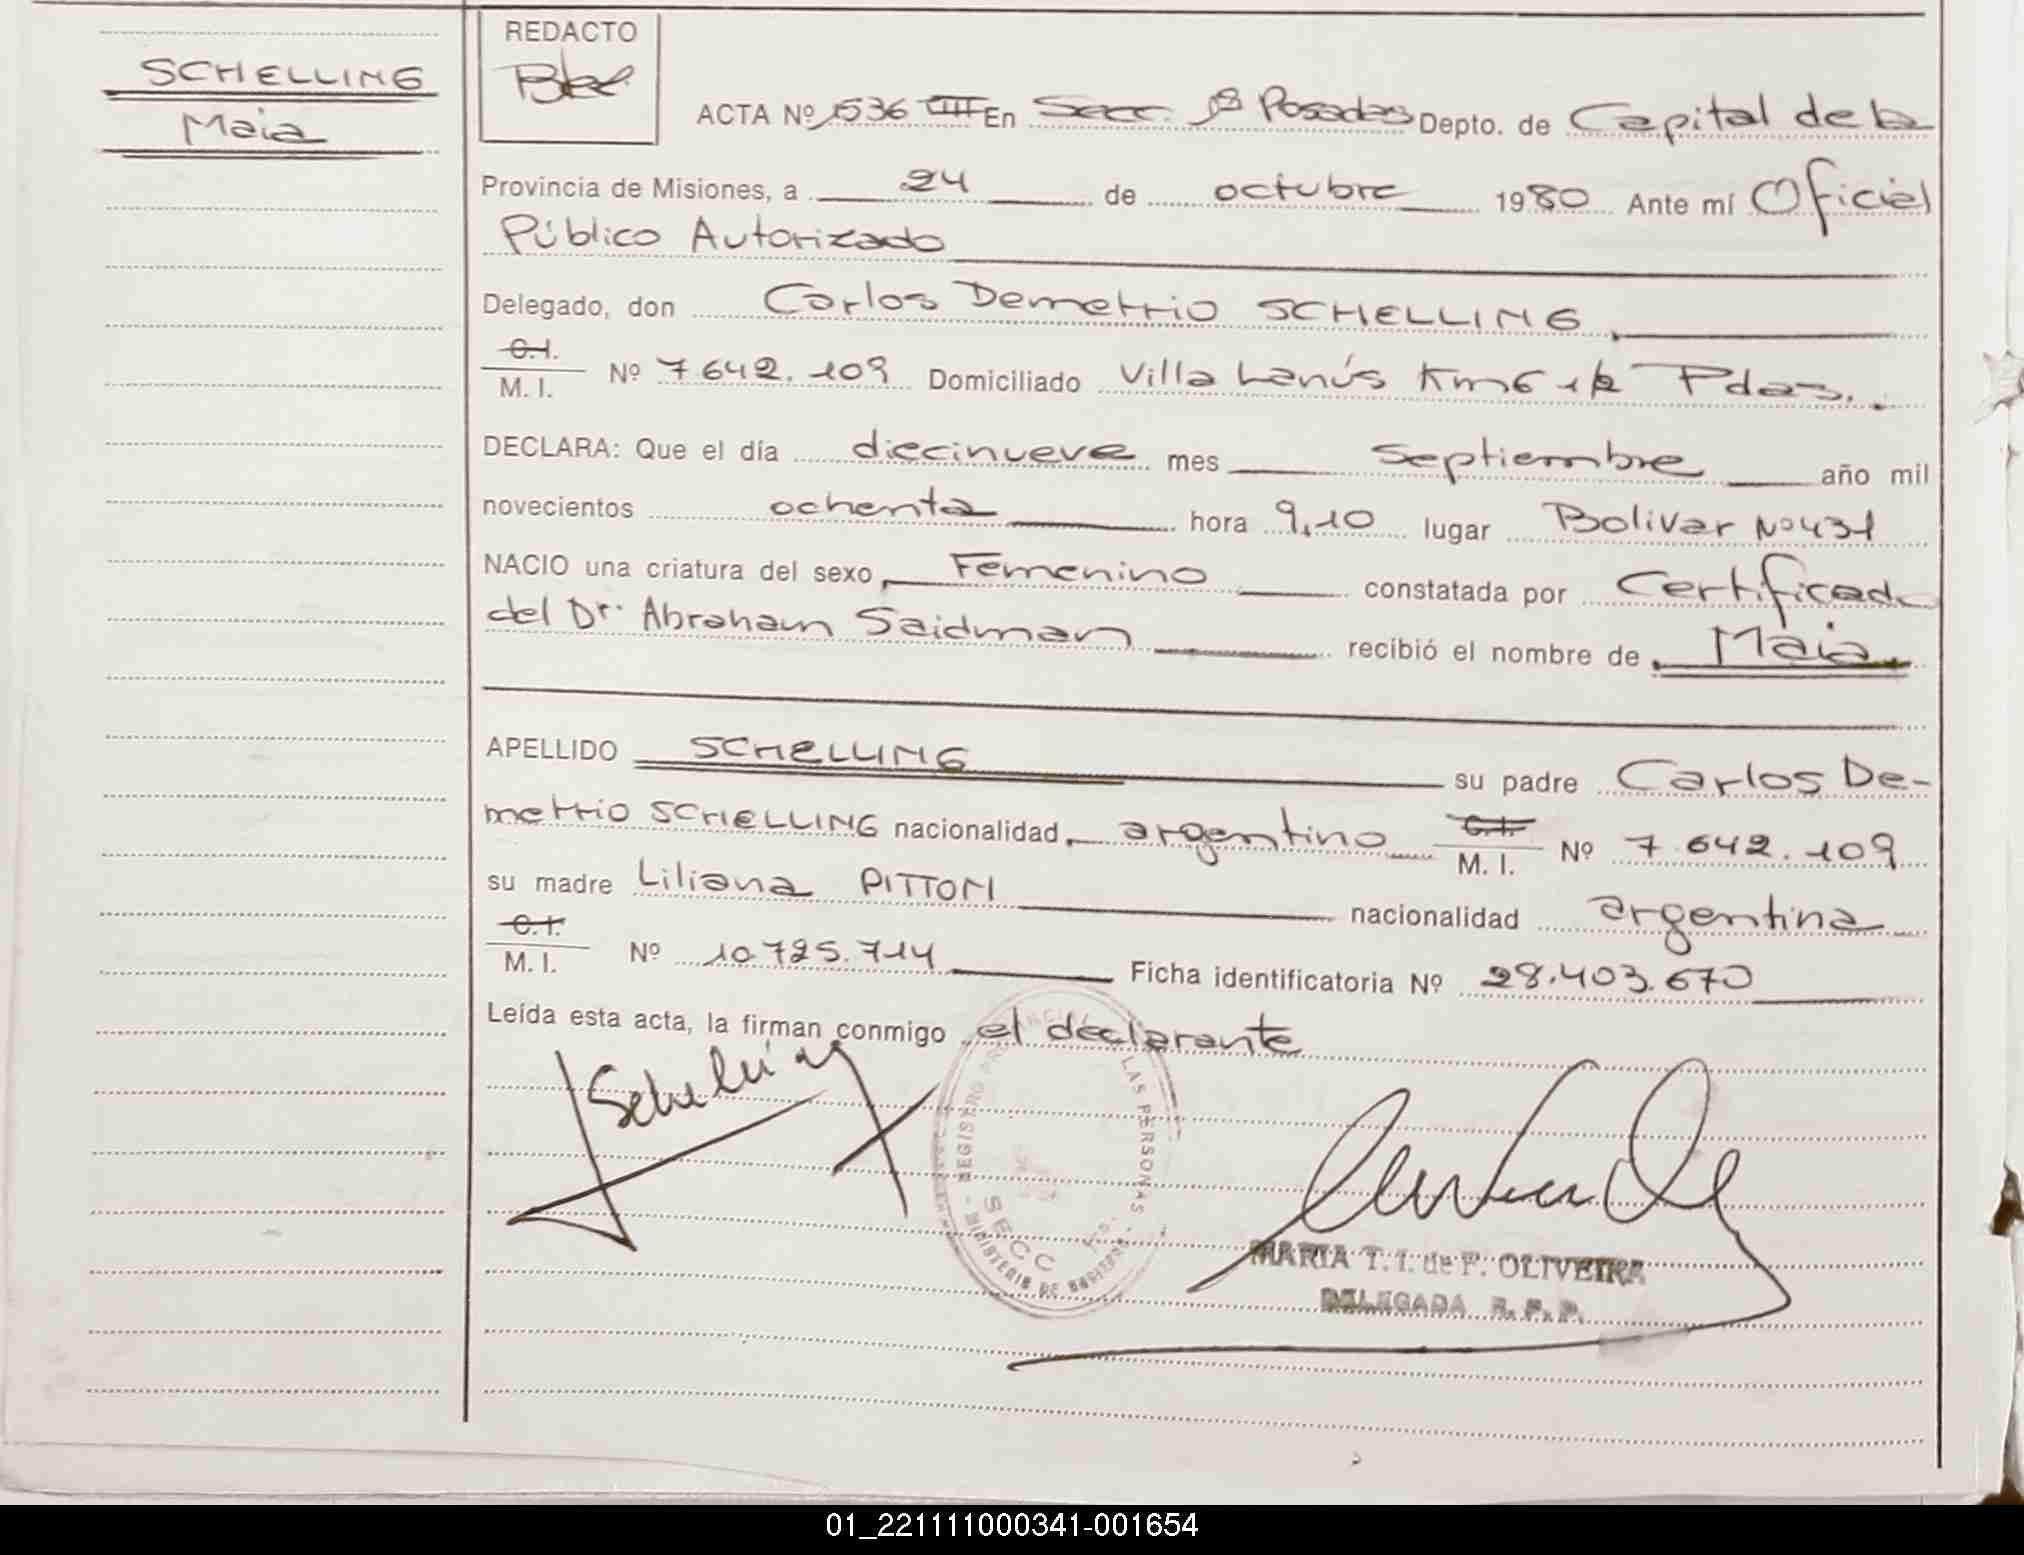 SCHELLING
Maia
REDACTO
ACTA Nº 1536 En Secc. 1ª Posadas Depto. de Capital de la
Provincia de Misiones, a 24 de octubre 1980 Ante mí Oficial
Público Autorizado
Delegado, don Carlos Demetrio SCHELLING
C.I.
M. I. Nº 7.642.109 Domiciliado Villa Lanús Km 6 1/2 Pdas.
DECLARA: Que el día diecinueve mes Septiembre año mil
novecientos ochenta hora 9,10 lugar Bolivar Nº 431
NACIO una criatura del sexo Femenino constatada por Certificado
del Dr. Abraham Saidman recibió el nombre de Maia
APELLIDO SCHELLING su padre Carlos De-
metrio SCHELLING nacionalidad argentino C.I. M. I. Nº 7.642.109
su madre Liliana PITTON nacionalidad argentina
C.I.
M. I. Nº 10.725.714 Ficha identificatoria Nº 28.403.670
Leída esta acta, la firman conmigo el declarante
Schelling
REGISTRO PROVINCIAL LAS PERSONAS
SECC
MINISTERIO DE
MARIA T. I. de F. OLIVEIRA
DELEGADA R. P. P.
01_221111000341-001654